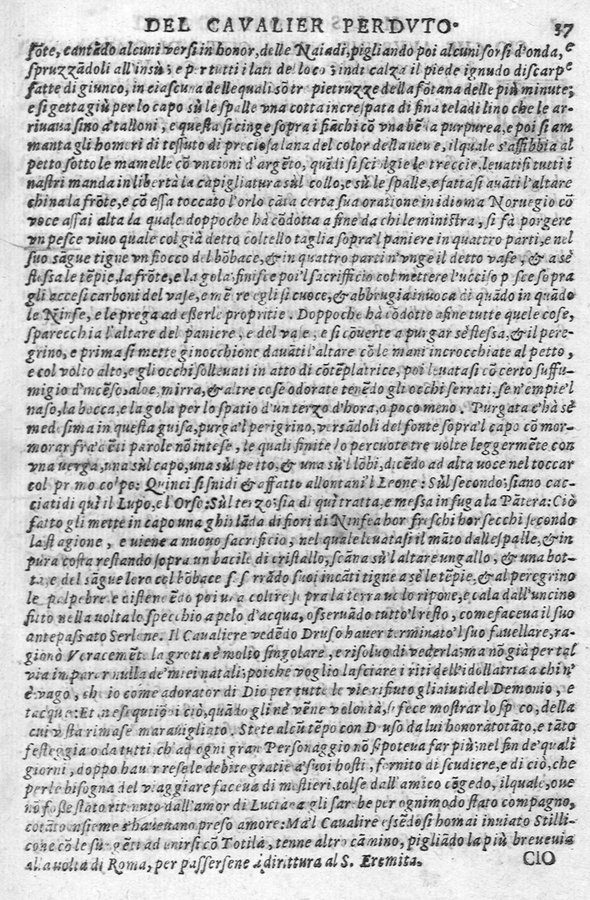 DEL CAVALIER PERDVTO. 37
fõte, cantãdo alcuni versi in honor, delle Naiadi, pigliando poi alcuni sorsi d'onda, e
spruzzãdoli all'insù; e per tutti i lati del loco; indi calza il piede ignudo di scarpe
fatte di giunco, in ciascuna delle quali sõ tre pietruzze della fõtana delle più minute;
e si getta giù per lo capo sù le spalle vna cotta increspata di fina tela di lino che le ar-
riuaua sino a'talloni, e questa si cinge sopra i fiãchi cõ vna bẽda purpurea, e poi si am
manta gli homeri di tessuto di preciosa lana del color della neue, il quale s'affibbia al
petto sotto le mamelle cõ vncioni d'argẽto, quidi si sciolgie le treccie, leuatisi tutti i
nastri manda in libertà la capigliatura sù'l collo, e sù le spalle, e fattasi auãti l'altare
china la frõte, e cõ essa toccato l'orlo cãta certa sua oratione in idioma Noruegio cõ
voce assai alta la quale doppo che hà cõdotta a fine da chi le ministra, si fà porgere
vn pesce viuo quale col già detto coltello taglia sopra'l paniere in quattro parti, e nel
suo sãgue tigne vn fiocco del bõbace, & in quattro parti n'vnge il detto vase, & a sè
stessa le tẽpie, la frõte, e la gola: finisce poi'l sacrifficio col mettere l'ucciso pesce sopra
gli accesi carboni del vase, e mẽtre egli si cuoce, & abbrugia inuoca di quãdo in quãdo
le Ninfe, e le prega ad esserle propitie. Doppo che hà cõdotte a fine tutte quele cose,
sparecchia l'altare del paniere, e del vase; e si cõuerte a purgar sè stessa, & il pere-
grino, e prima si mette ginocchione dauãti l'altare cõ le mani incrocchiate al petto,
e col volto alto, e gli occhi solleuati in atto di cõtẽplatrice, poi leuatasi cõ certo suffu-
migio d'incẽso, aloe, mirra, & altre cose odorate tenẽdo gli occhi serrati, se n'empie'l
naso, la bocca, e la gola per lo spatio d'un terzo d'hora, o poco meno. Purgata c'hà sè
medesima in questa guisa, purga'l perigrino, versãdoli del fonte sopra'l capo cõ mor-
morar frà dẽti parole nõ intese, le quali finite lo percuote tre volte leggermẽte con
vna verga, una sù'l capo, una sù'l petto, & una sù'l lõbi, dicẽdo ad alta voce nel toccar
col primo colpo: Quinci si snidi & affatto allontani'l Leone: Sù'l secondo; siano cac-
ciati di qui il Lupo, e l'Orso: Sù'l terzo; sia di quì tratta, e messa in fuga la Pãtera: Ciò
fatto gli mette in capo una ghirlãda di fiori di Ninfea hor freschi hor secchi secondo
la stagione, e viene a nuouo sacrificio, nel quale leuatasi il mãto dalle spalle, & in
pura cotta restando sopra un bacile di cristallo, scãna sù l'altare un gallo, & una bot-
ta, e del sãgue loro col bõbace suoi incãti tigne a sè le tẽpie, & al peregrino
le palpebre, e la terra uelo ripone, e cala dall'uncino
fitto nella uolta lo specchio a pelo d'acqua, osseruãdo tutto'l resto, come faceua il suo
antepassato Serlone. Il Caualiere vedẽdo Druso hauer terminato'l suo fauellare, ra-
gionò Veracemẽte la grotta è molio singolare, e risoluo di vederla; ma nõ già per tal
via imparar nulla de'miei natali; poiche voglio lasciare i riti dell'idollatria a chi n'
è vago, che io come adorator di Dio per tutte le vie rifiuto gli aiuti del Demonio, e
tacque: Et ne sequtiò i ciò, quãdo gli nè vẽne volontà, si fece mostrar lo speco, della
cui vista rimase marauigliato. Stete alcũ tẽpo con Druso da lui honoratotãto, e tãto
festeggiato da tutti ch'ad ogni gran Personaggio nõ si poteua far più: nel fin de'quali
giorni, doppo hauer rese le debite gratie a'suoi hosti, fornito di scudiere, e di ciò, che
per le bisogna del viaggiare faceua di mestieri, tolse dall'amico cõgedo, il quale, oue
nõ fosse stato ritenuto dall'amor di Luciana gli sarebbe per ogni modo stato compagno,
cotãto insieme s'haueano preso amore: Ma'l Caualire essẽdosi homai inuiato Stilli-
cone cõ le sue gẽti ad unirsi cõ Totila, tenne altro cãmino, pigliãdo la più breue via
alla uolta di Roma, per passersene a dirittura al S. Eremita.
CIO